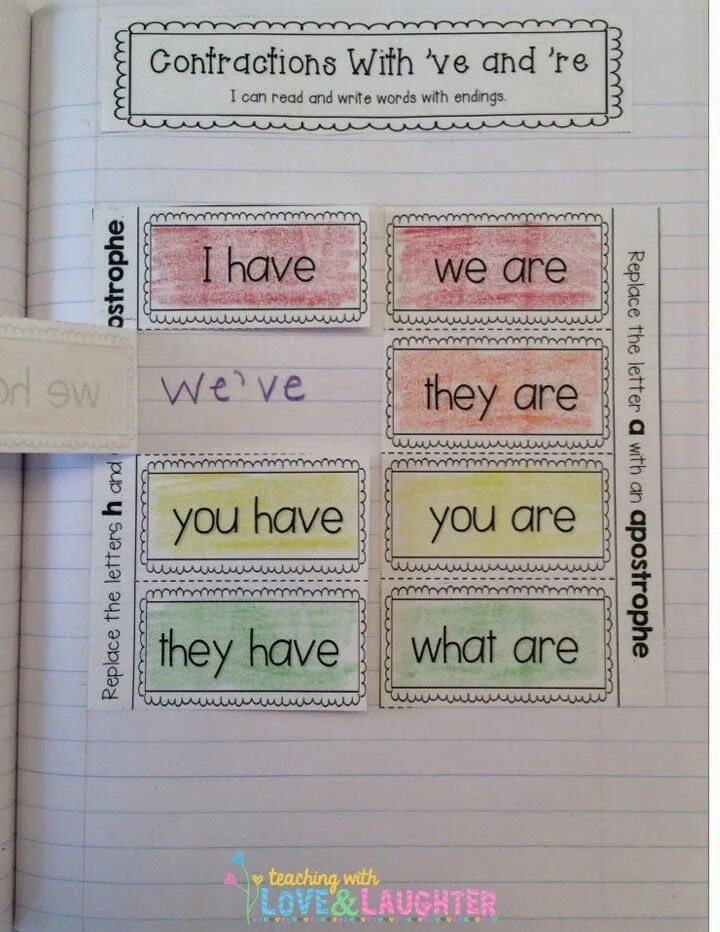 Contractions With 've and 're
I can read and write words with endings.
I have
we are
we've
they are
you have
you are
they have
what are
Replace the letters h and
ostrophe.
Replace the letter a with an apostrophe.
we ha
teaching with
LOVE&LAUGHTER